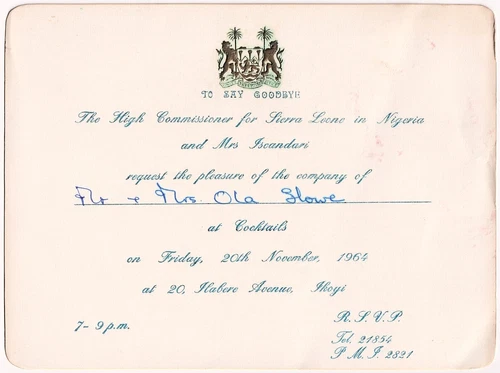 TO SAY GOODBYE
The High Commissioner for Sierra Leone in Nigeria
and Mrs Iscandari
request the pleasure of the company of
Mr & Mrs. Ola Slowe
at Cocktails
on Friday, 20th November, 1964
at 20, Ilabere Avenue, Ikoyi
7-9 p.m.
R.S.V.P.
Tel. 21854
P M I. 2821